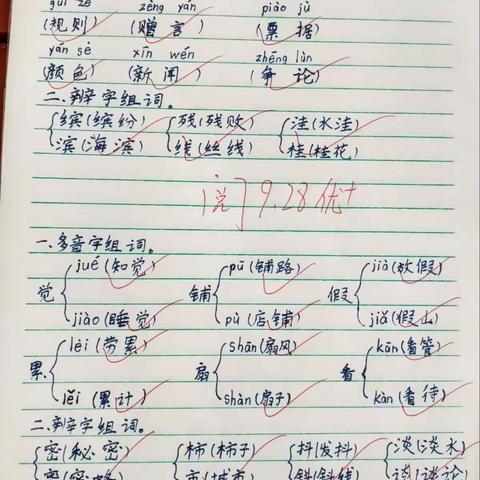 guī zé zèng yán piào jù
(规则) (赠言) (票据)
yán sè xīn wén zhēng lùn
(颜色) (新闻) (争论)
二.辨字组词。
缤(缤纷) 残(残败) 洼(水洼)
滨(海滨) 线(丝线) 桂(桂花)
阅 9.28 优+
一.多音字组词。
觉 jué(知觉) 铺 pū(铺路) 假 jià(放假)
jiào(睡觉) pù(店铺) jiǎ(假山)
累 lèi(劳累) 扇 shān(扇风) 看 kān(看管)
lěi(累计) shàn(扇子) kàn(看待)
二.辨字组词。
密(秘密) 柿(柿子) 抖(发抖) 淡(淡水)
市(城市) 斜(斜线) 谈(谈论)